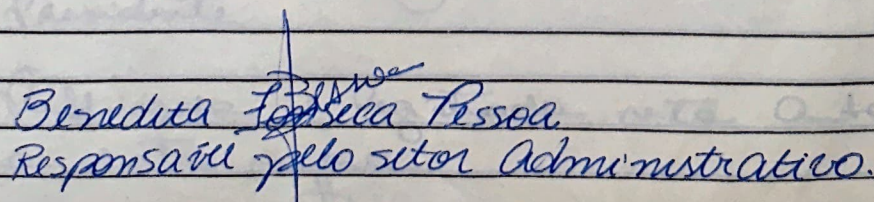 Benedita Fonseca Pessoa.
Responsável pelo setor Administrativo.